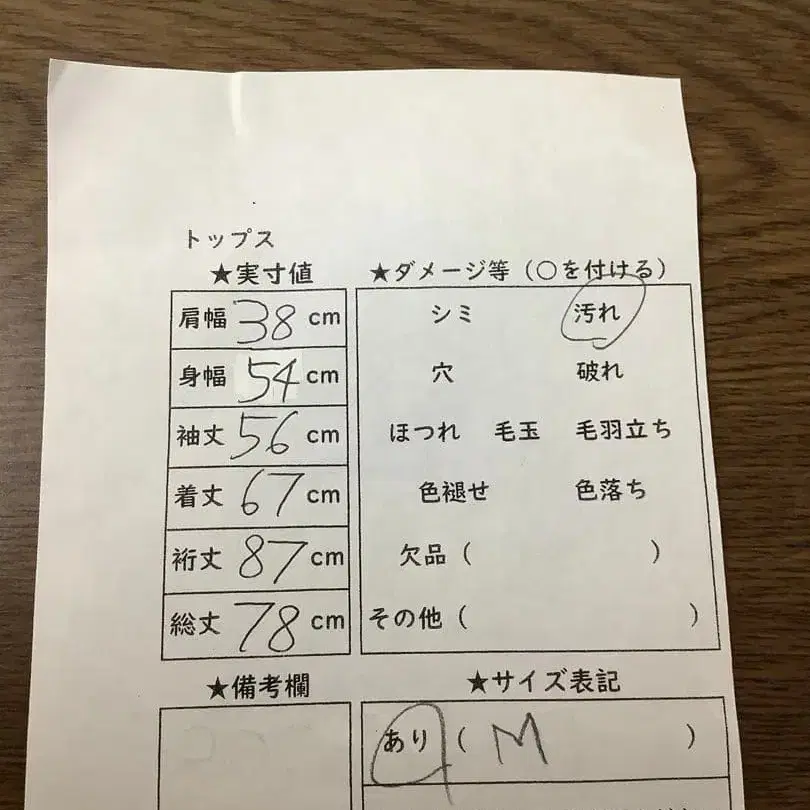 トップス
★実寸値
肩幅 38 cm
身幅 54 cm
袖丈 56 cm
着丈 67 cm
裄丈 87 cm
総丈 78 cm
★ダメージ等（○を付ける）
シミ 汚れ
穴 破れ
ほつれ 毛玉 毛羽立ち
色褪せ 色落ち
欠品（ ）
その他（ ）
★備考欄
★サイズ表記
あり（ M ）